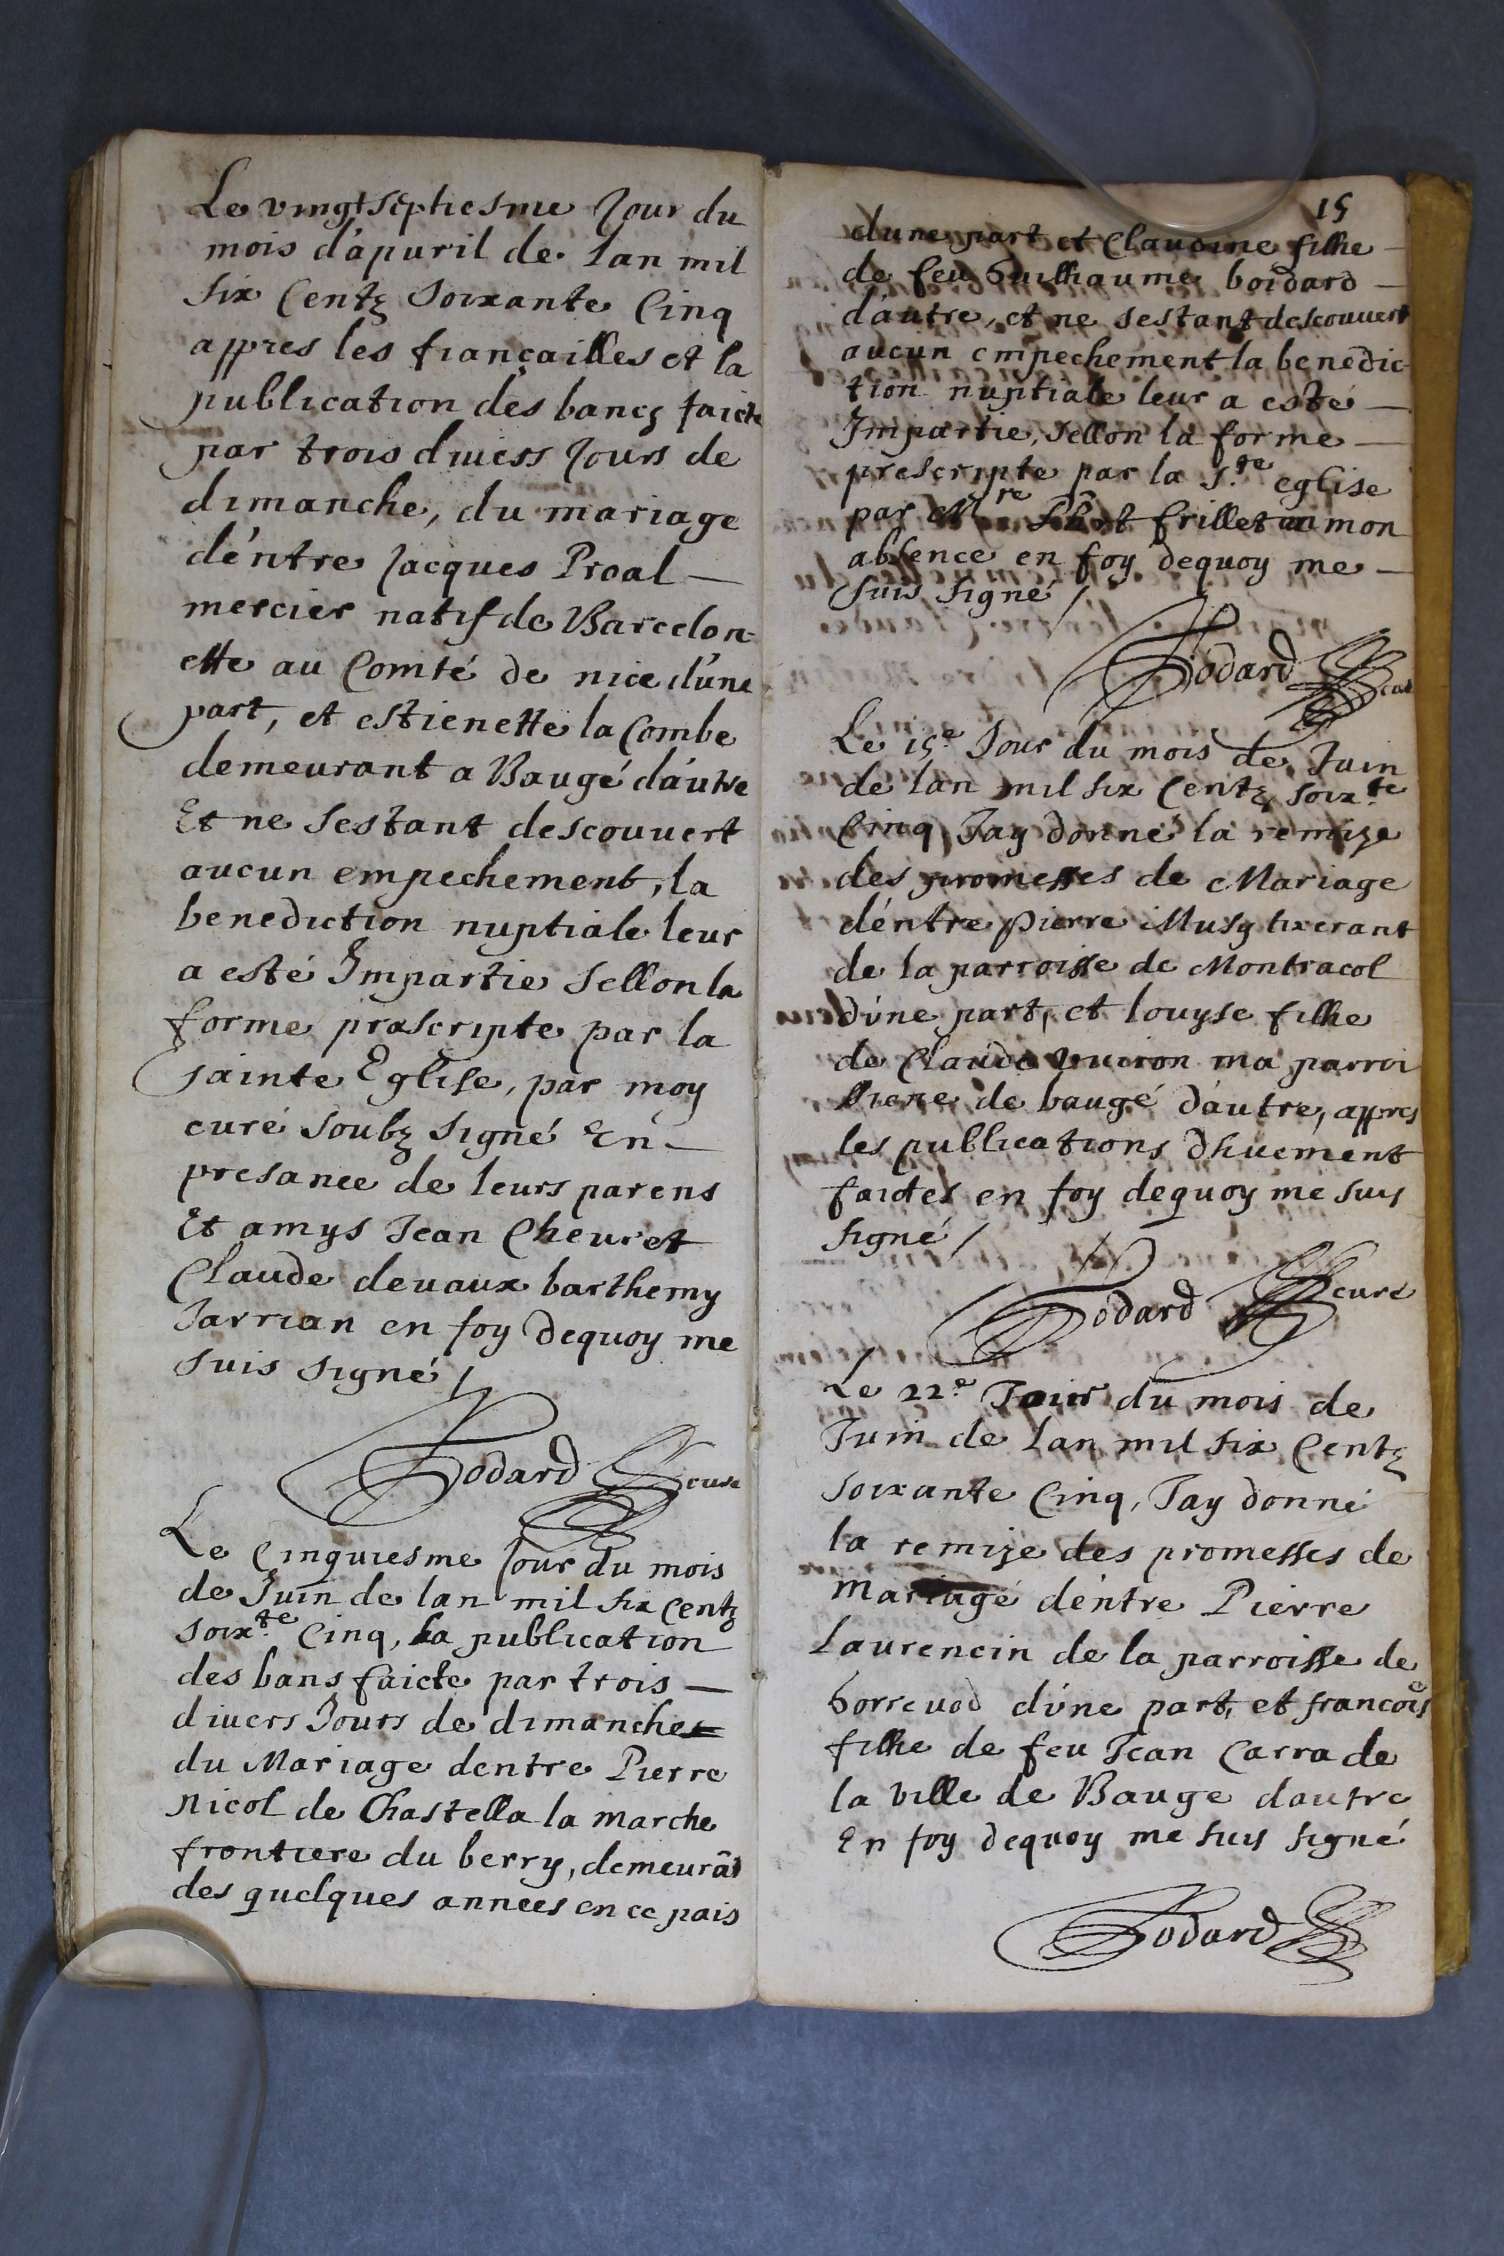 Le vingtseptiesme Jour du
mois d'apuril de lan mil
six Centz soixante Cinq
appres les fiançailles et la
publication des bancz faicte
par trois divers Jours de
dimanche, du mariage
d'entre Jacques Proal —
mercier natif de Barcelon-
ette au Comté de nice d'une
part, et estienette la Combe
demeurant a Baugé d'autre
Et ne sestant descouuert
aucun empechement, la
benediction nuptiale leur
a esté Impartie sellon la
forme prascripte par la
sainte Eglise, par moy
curé soubz signé En —
presance de leurs parens
Et amys Jean Cheuret
Claude deuaux barthemy
Jarrian en foy dequoy me
suis signé /
Bodard curé
Le Cinquiesme Jour du mois
de Juin de lan mil six Centz
soixte Cinq, la publication
des bans faicte par trois —
diuers Jours de dimanche
du Mariage dentre Pierre
nicol de Chastella la marche
frontiere du berry, demeurāt
des quelques annees en ce pais
15
dune part et Claudine filhe —
de feu Guilhaume boidard —
d'autre, et ne sestant descouuert
aucun empechement la benedic-
tion nuptiale leur a esté —
Impartie, sellon la forme —
prescripte par la Ste eglise
par Mre frillet en mon
absence en foy dequoy me —
suis signé /
Bodard curé
Le 15e Jour du mois de Juin
de lan mil six Centz soixte
Cinq Jay donné la remize
des promesses de Mariage
d'entre pierre Musy tixerant
de la parroisse de Montracol
d'une part, et louyse filhe
de Claude vuiron ma parroi
siene de baugé d'autre, appres
les publications dhuement
faictes en foy dequoy me suis
signé /
Bodard curé
Le 22e Jour du mois de
Juin de lan mil six Centz
soixante Cinq, Jay donné
la remize des promesses de
Mariagé d'entre Pierre
Laurencin de la parroisse de
Gorreuod d'une part, et francoise
filhe de feu Jean Carra de
la ville de Bauge dautre
En foy dequoy me suis signé
Bodard